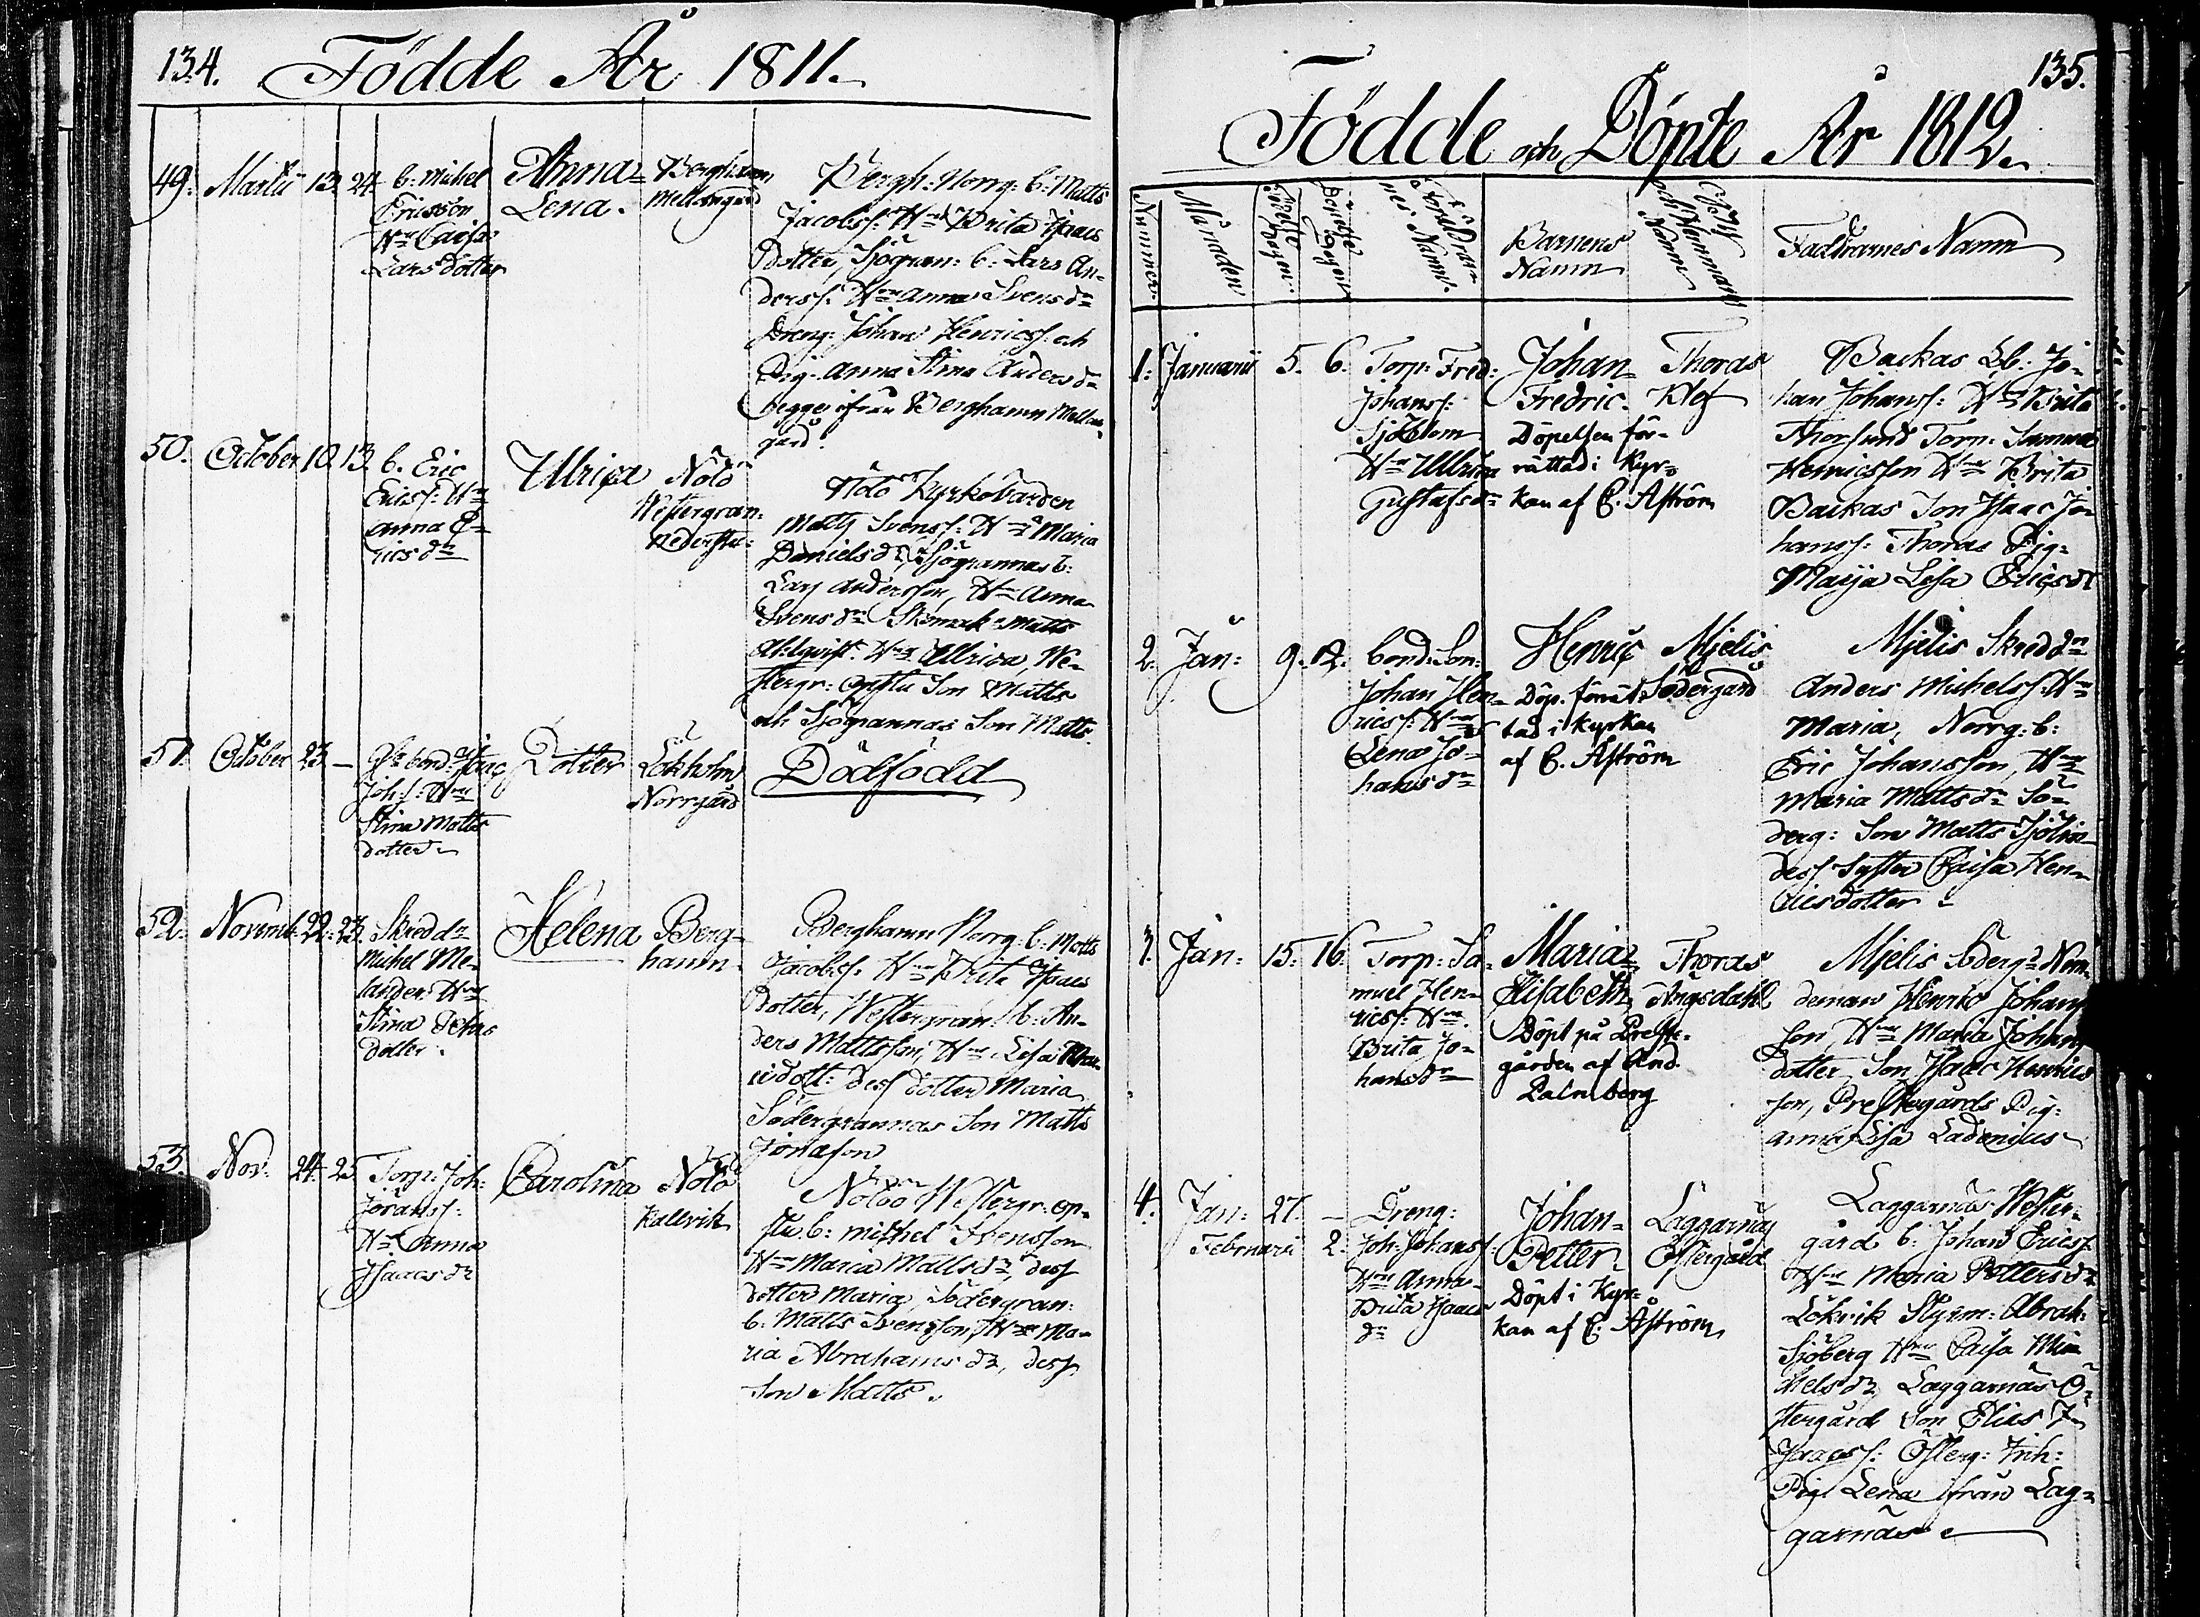 134.
Födde År 1811.
49. Martii 13. 24.
b: Michel
Ericsson
Hu
Lars dotter
Anna
Lena.
Berghamn
Mellangård
Bergh: Norrg: b: Matts
Jacobss: Hu Brita Isaacs
dotter, Sjögran: b: Lars An-
derss: Hu Anna Svensdr
Dreng: Johan Henricss: och
Pig: Anna Stina Andersdr
begge ifrån Berghamn Mellan-
gård.
50. October 10. 13.
b. Eric
Ericss: Hu
Anna E-
ricsdr
Ulrica
Nötö
Westergran:
Nederstu:
Nötö Kyrkobärden
Matts Svenss: Hu Maria
Danielsdr, Sjögrannas b:
Lars Andersson, Hu Anna
Svensdr Skomak: Matts
Ahlqvist. Hu Ulrica We-
stergr: Opstu Son Matts
och Sjögrannas Son Matts.
51. October 23. —
bond: Isaac
Joh:s: Hu
Stina Matts
dotter
Dotter
Lökholm
Norrgård
Dödfödd
52. Novemb: 22. 23.
Skreddr
Michel Me-
lander Hu
Stina
dotter.
Helena
Berg-
hamn.
Berghamn Norrg: b: Matts
Jacobss: Hu Brita Isaacs
dotter, Westergran: b: An-
ders Mattsson, Hu Lisa
dott: dess dotter Maria
Södergrannas Son Matts
Jonasson
53. Nov. 24. 25.
Torp: Joh:
Jöranss:
Hu Anna
Isaacsdr
Carolina
Nötö
Kallvik
Nötöö Westergr: op-
stu. b: Michel Svensson
Hu Maria Mattsdr, dess
dotter Maria, Södergran:
b: Matts Svensson, Hu Ma-
ria Abrahamsdr, dess
Son Matts.
135.
Födde och Döpte År 1812.
Nummer.
Månaden
Födelse
Dagen.
Döpelse
Dagen
Föräldrar-
nes Namn.
Barnens
Namn
Namn
Faddrarnes Namn
1. Januarii 5. 6.
Torp: Fred:
Johans:
Sjöblom
Hu Ulrica
Gustafsdr
Johan
Fredric.
Döpelsen för-
rättad i Kyr-
kan af C. Åström
Thoras
Klef
Backas Lb: Jo-
han Johanss: Hu Brita
Thorsund Torp: Samuel
Henricsson Hu Brita
Backas Son Isaac Jo-
hanss: Thoras Pig:
Maija Lisa Ericsdr
2. Jan: 9. 12.
bond: Son:
Johan Hen-
ricss: Hu
Lena Jo-
hansdr
Henric
Döp. förrät-
tad i kyrkan
af C. Åström
Mjelis
Södergård
Mjelis Skreddr
Anders Michelss: Hu
Maria, Norrg: b:
Eric Johansson, Hu
Maria Mattsdr Sö-
derg: Son Matts
dess Syster Caisa Hen-
ricsdotter
3. Jan: 15. 16.
Torp: Sa-
muel Hen-
ricss: Hu
Brita Jo-
hansdr
Maria
Elisabeth
Döpt på Preste-
gården af And.
Palmberg
Thoras
Ängsdahl
Mjelis Söderg: Nem-
deman Henric Johans
son, Hu Maria Johans
dotter, Son Isaac Henrics
son, Prestegårds Pig:
Anna Lisa Ladenius
4. Jan: 27. —
Februarii 2.
Dreng:
Joh: Johanss:
Hu Anna
Brita Isaacs
dr
Johan
Petter
Döpt i Kyr-
kan af C. Åström
Laggarnäs
Östergård
Laggarnäs Wester-
gård b: Johan Ericss:
Hu Maria Pettersdr
Lökvik Styrm: Abrah:
Sjöberg Hu Caisa Mi-
chelsdr Laggarnäs Ö-
stergård Son Elias
Isaacss: Österg: Inh:
Pig: Lena ifrån Lag-
garnäs